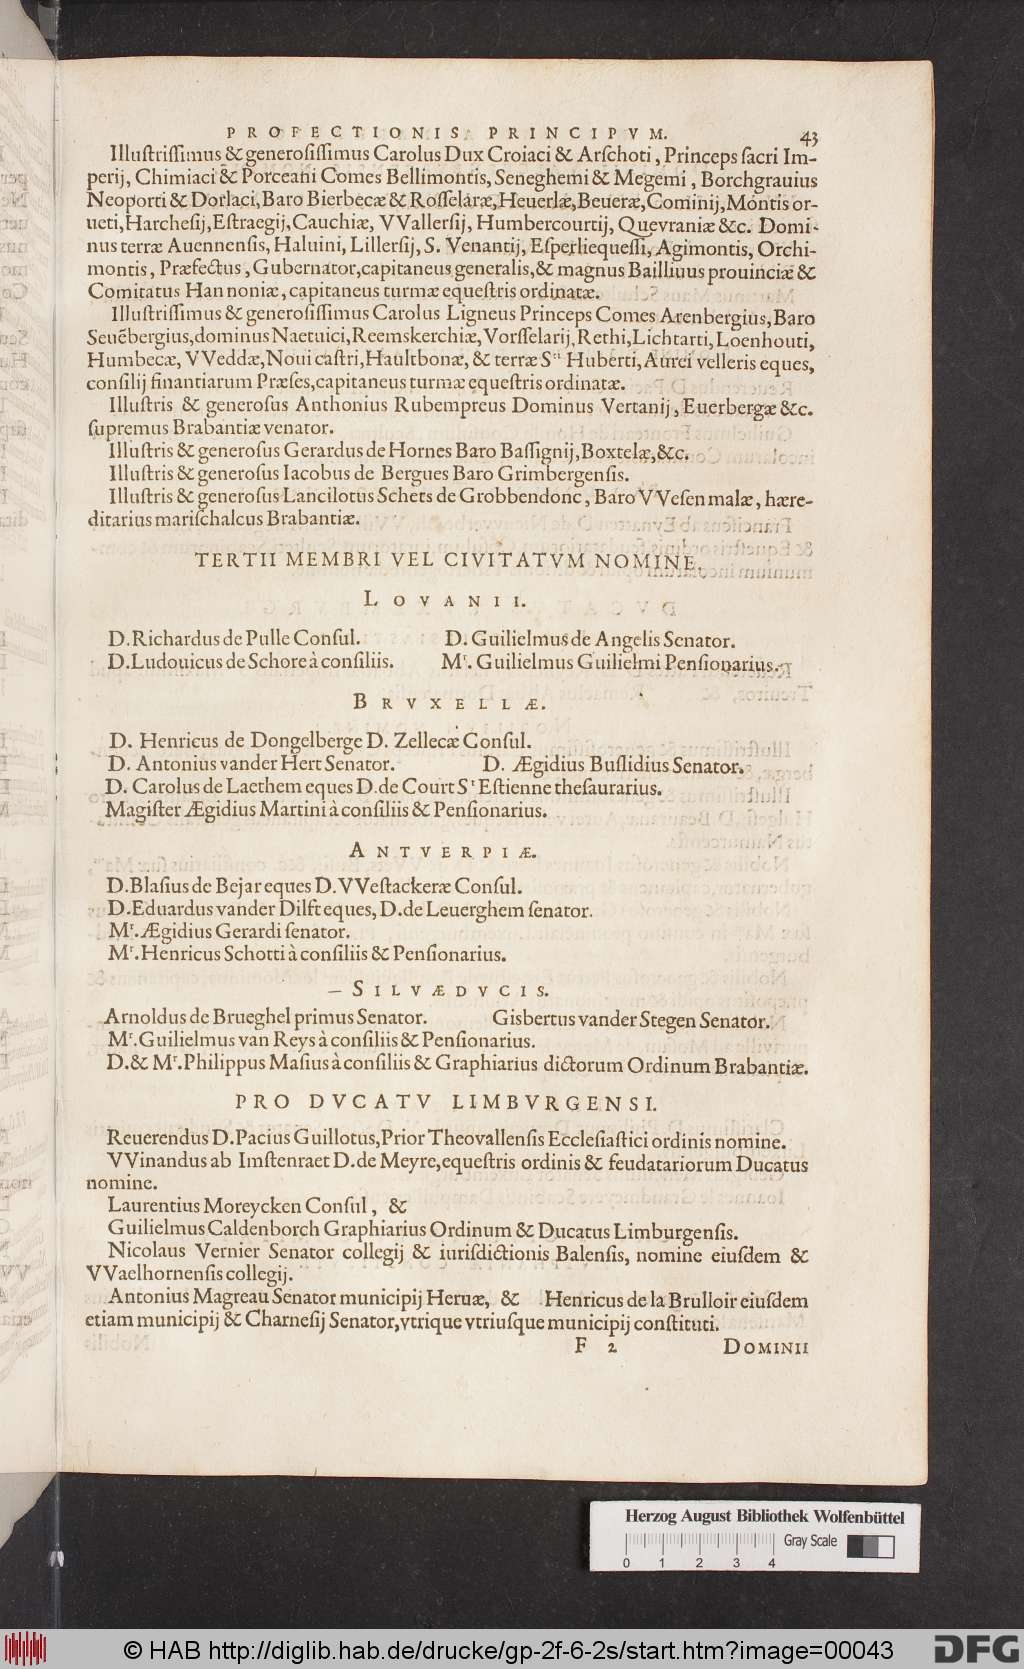 PROFECTIONIS PRINCIPVM. 43
Illuſtriſſimus & generoſiſſimus Carolus Dux Croiaci & Arſchoti, Princeps ſacri Im-
perij, Chimiaci & Porceani Comes Bellimontis, Seneghemi & Megemi, Borchgrauius
Neoporti & Dorlaci, Baro Bierbecæ & Roſſelaræ, Heuerlæ, Beueræ, Cominij, Montis or-
ueti, Harcheſij, Eſtraegij, Cauchiæ, VVallerſij, Humbercourtij, Quevraniæ &c. Domi-
nus terræ Auennenſis, Haluini, Lillerſij, S. Venantij, Eſperliequeſſi, Agimontis, Orchi-
montis, Præfectus, Gubernator, capitaneus generalis, & magnus Bailliuus prouinciæ &
Comitatus Hannoniæ, capitaneus turmæ equeſtris ordinatæ.
Illuſtriſſimus & generoſiſſimus Carolus Ligneus Princeps Comes Arenbergius, Baro
Seuēbergius, dominus Naetuici, Reemskerchiæ, Vorſſelarij, Rethi, Lichtarti, Loenhouti,
Humbecæ, VVeddæ, Noui caſtri, Haultbonæ, & terræ Sti Huberti, Aurei velleris eques,
conſilij finantiarum Præſes, capitaneus turmæ equeſtris ordinatæ.
Illuſtris & generoſus Anthonius Rubempreus Dominus Vertanij, Euerbergæ &c.
ſupremus Brabantiæ venator.
Illuſtris & generoſus Gerardus de Hornes Baro Baſſignij, Boxtelæ, &c.
Illuſtris & generoſus Iacobus de Bergues Baro Grimbergenſis.
Illuſtris & generoſus Lancilotus Schets de Grobbendonc, Baro VVeſenmalæ, hære-
ditarius mariſchalcus Brabantiæ.
TERTII MEMBRI VEL CIVITATVM NOMINE.
LOVANII.
D. Richardus de Pulle Conſul. D. Guilielmus de Angelis Senator.
D. Ludouicus de Schore à conſiliis. Mr. Guilielmus Guilielmi Penſionarius.
BRVXELLÆ.
D. Henricus de Dongelberge D. Zellecæ Conſul.
D. Antonius vander Hert Senator. D. Ægidius Buſlidius Senator.
D. Carolus de Laethem eques D. de Court St Eſtienne theſaurarius.
Magiſter Ægidius Martini à conſiliis & Penſionarius.
ANTVERPIÆ.
D. Blaſius de Bejar eques D. VVeſtackeræ Conſul.
D. Eduardus vander Dilft eques, D. de Leuerghem ſenator.
Mr. Ægidius Gerardi ſenator.
Mr. Henricus Schotti à conſiliis & Penſionarius.
SILVÆDVCIS.
Arnoldus de Brueghel primus Senator. Gisbertus vander Stegen Senator.
Mr. Guilielmus van Reys à conſiliis & Penſionarius.
D. & Mr. Philippus Maſius à conſiliis & Graphiarius dictorum Ordinum Brabantiæ.
PRO DVCATV LIMBVRGENSI.
Reuerendus D. Pacius Guillotus, Prior Theovallenſis Eccleſiaſtici ordinis nomine.
VVinandus ab Imſtenraet D. de Meyre, equeſtris ordinis & feudatariorum Ducatus
nomine.
Laurentius Moreycken Conſul, &
Guilielmus Caldenborch Graphiarius Ordinum & Ducatus Limburgenſis.
Nicolaus Vernier Senator collegij & iuriſdictionis Balenſis, nomine eiuſdem &
VVaelhornenſis collegij.
Antonius Magreau Senator municipij Heruæ, & Henricus de la Brulloir eiuſdem
etiam municipij & Charneſij Senator, vtrique vtriuſque municipij conſtituti.
F 2 DOMINII
Herzog August Bibliothek Wolfenbüttel
Gray Scale
0 1 2 3 4
© HAB http://diglib.hab.de/drucke/gp-2f-6-2s/start.htm?image=00043
DFG